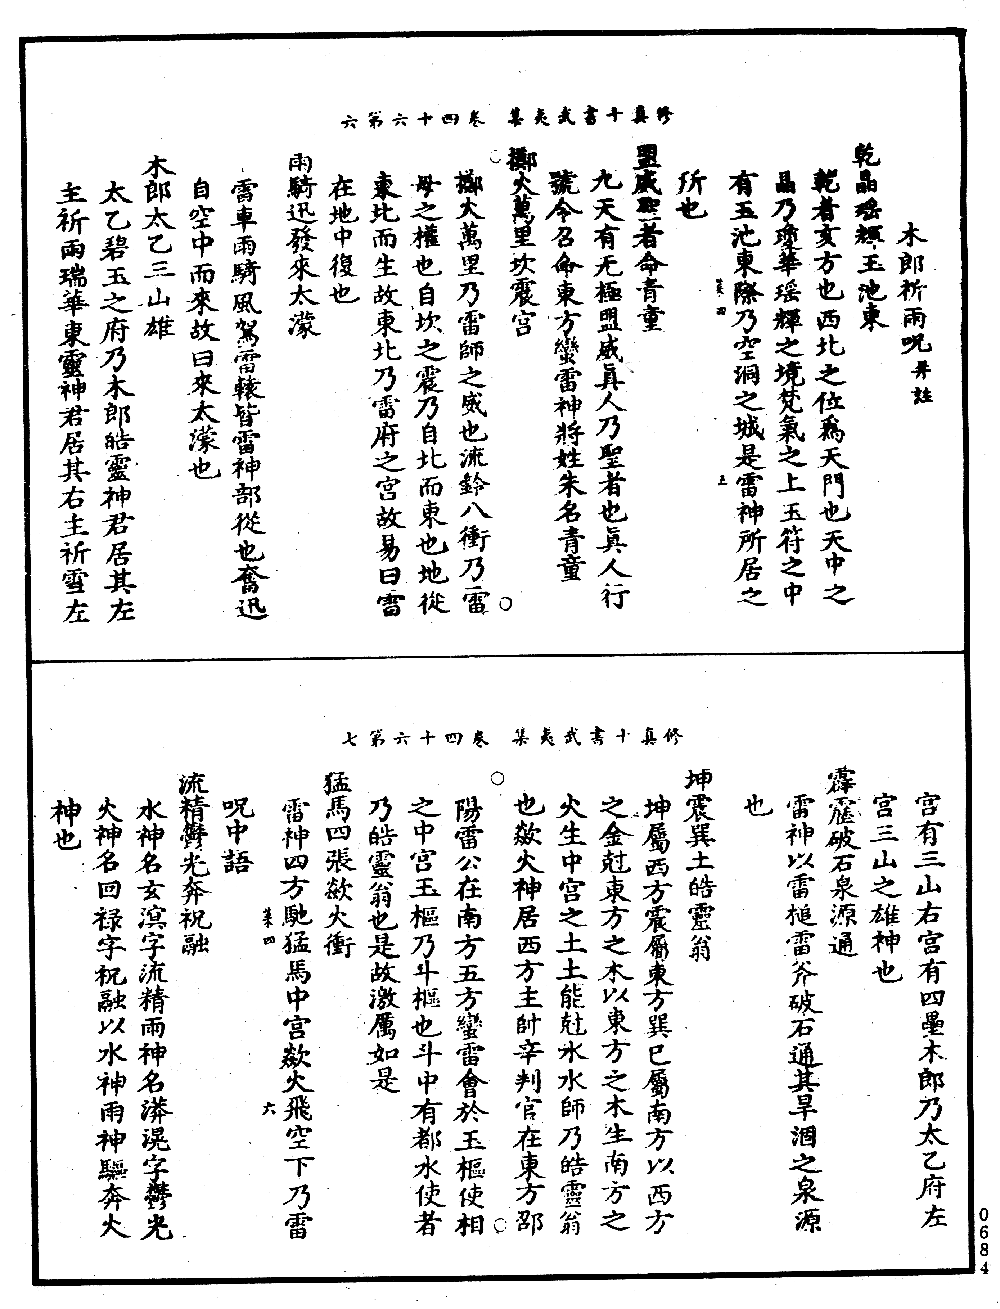 修真十書武夷集　卷四十六第六
木郎祈雨呪并註
乾晶瑶輝玉池東
乾者亥方也西北之位爲天門也天中之
晶乃瓊華瑶輝之境梵氣之上玉符之中
有玉池東際乃空洞之城是雷神所居之
所也
盟威聖者命青童
九天有无極盟威眞人乃聖者也眞人行
號令召命東方蠻雷神將姓朱名青童
擲火萬里坎震宫
擲火萬里乃雷師之威也流鈴八衝乃雷
母之權也自坎之震乃自北而東也地從
東北而生故東北乃雷府之宫故易曰雷
在地中復也
雨騎迅發來太濛
雷車雨騎風駕雷轅皆雷神部從也奮迅
自空中而來故曰來太濛也
木郎太乙三山雄
太乙碧玉之府乃木郎皓靈神君居其左
主祈雨瑞華東靈神君居其右主祈雪左
菓四
五
修真十書武夷集　卷四十六第七
宫有三山右宫有四墨木郎乃太乙府左
宫三山之雄神也
霹靂破石泉源通
雷神以雷槌雷斧破石通其旱涸之泉源
也
坤震巽土皓靈翁
坤屬西方震屬東方巽巳屬南方以西方
之金尅東方之木以東方之木生南方之
火生中宫之土土能尅水水師乃皓靈翁
也歘火神居西方主帥辛判官在東方邵
陽雷公在南方五方蠻雷會於玉樞使相
之中宫玉樞乃斗樞也斗中有都水使者
乃皓靈翁也是故激厲如是
猛馬四張歘火衝
雷神四方馳猛馬中宫歘火飛空下乃雷
呪中語
流精欝光奔祝融
水神名玄溟字流精雨神名漭滉字欝光
火神名回禄字祝融以水神雨神驅奔火
神也
菓四
六
0684